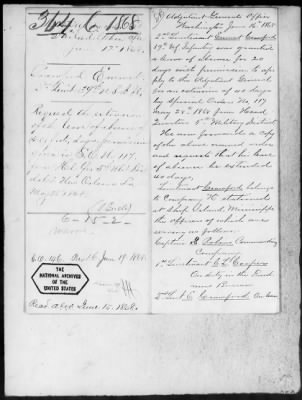 1868
June 1868.
Crawford, Emmet
2d Lieut. 39th U.S. Inf.
Requests the extension
of his leave of absence
117
(1 Encl)
6-15-2-
June 19. 1868
THE
NATIONAL ARCHIVES
OF THE
UNITED STATES
Recd AGO June 15. 1868.
Adjutant Generals Office,
Washington June 15th 1868
2nd Lieutenant Emmet Crawford
39th Infantry was granted
a leave of absence for 20
days with permission to ap-
ply to the Adjutant General
for an extension of 40 days
by Special Orders No. 117
May 25th 1868 from Head
Quarters 5th Military District
He now forwards a copy
of the above named order
and requests that his leave
of absence be extended
40 days.
Lieutenant Crawford belongs
to Company K stationed
at Ship Island Mississippi
the officers of which are
serving as follows.
Captain Commanding
Company
1st Lieutenant
On duty in the Freed
mens Bureau
2nd Lieut E. Crawford On leave